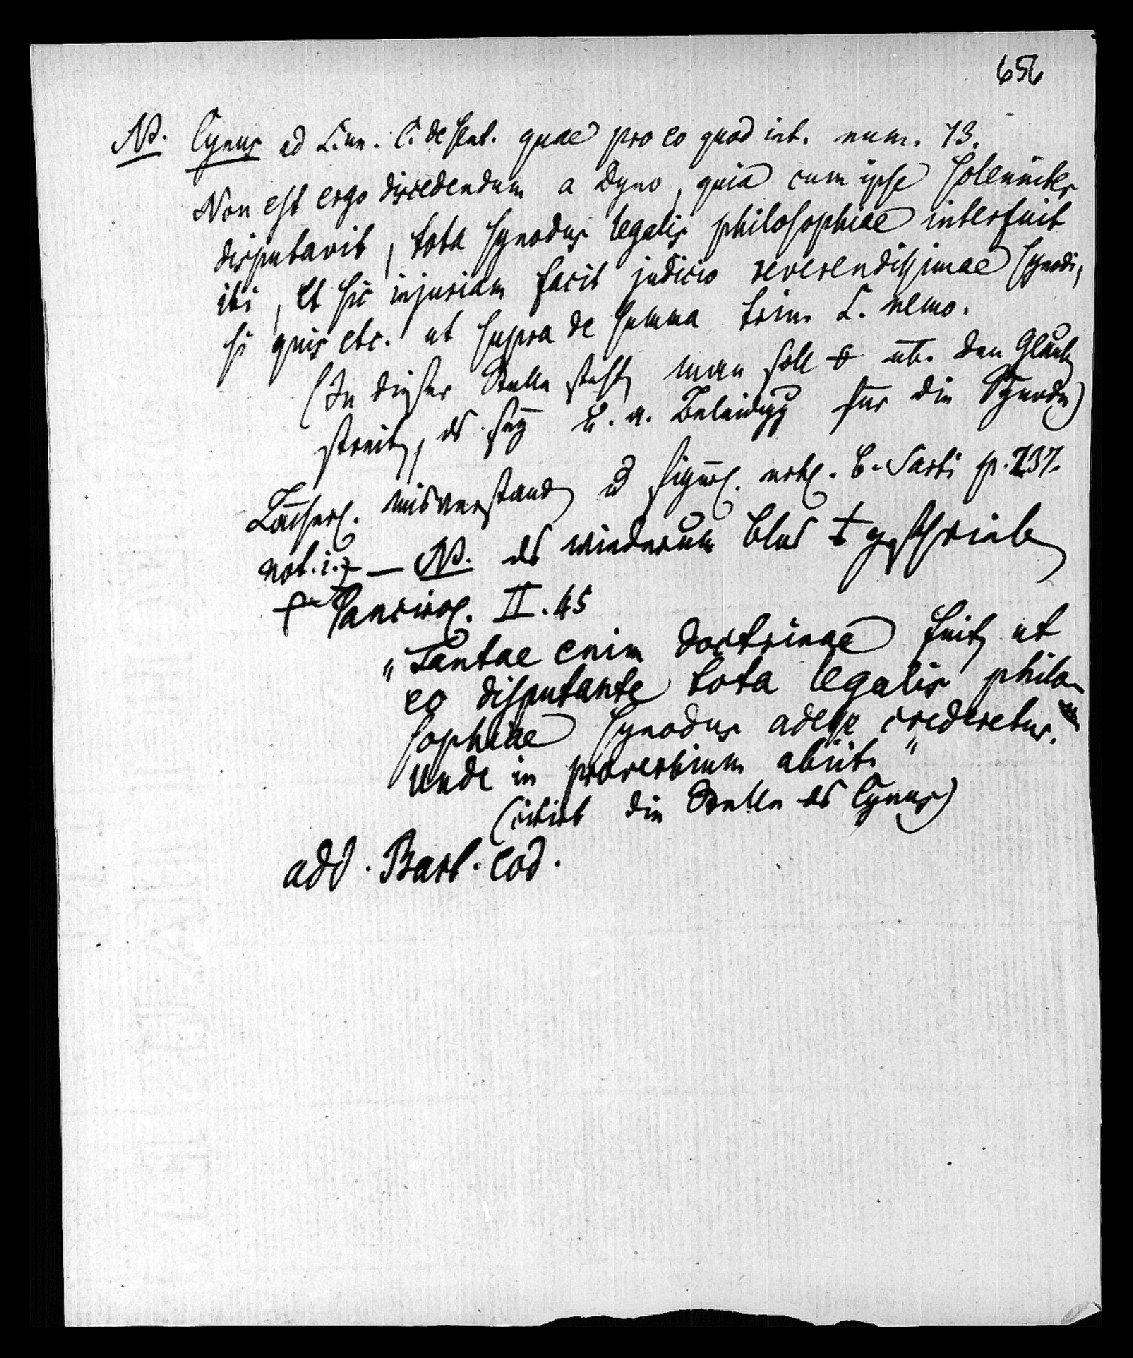 656
NB. Cynus ad L. un. C. de sent. quae pro eo quod int. num. 13.
Non est ergo discedendum a Dyno, quia cum ipse solenniter
disputavit, tota synodus legalis philosophiae interfuit
ibi, et sic injuriam facit judicio reverendissimae synodi,
si quis etc. ut supra de summa trin. L. nemo.
(In dieser Stelle steht, man soll üb. den Glauben
streiten, es sey eine Beleidigg für die Synode)
Lächerl. misverstanden id. p. 237.
not. i. — NB. es wiederum blos geschrieben
Pancirol. II. 45
„Tantae enim doctrinae fuit, ut
eo disputante tota legalis philo-
sophiae synodus adesse crederetur.
Unde in proverbium abiit."
(citirt die Stelle des Cynus)
add. Bart. Cod.